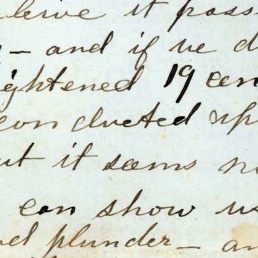 leive it poss
- and if we d
ightened 19 cen
conducted up
ut it seams no
can show us
el plunder - an